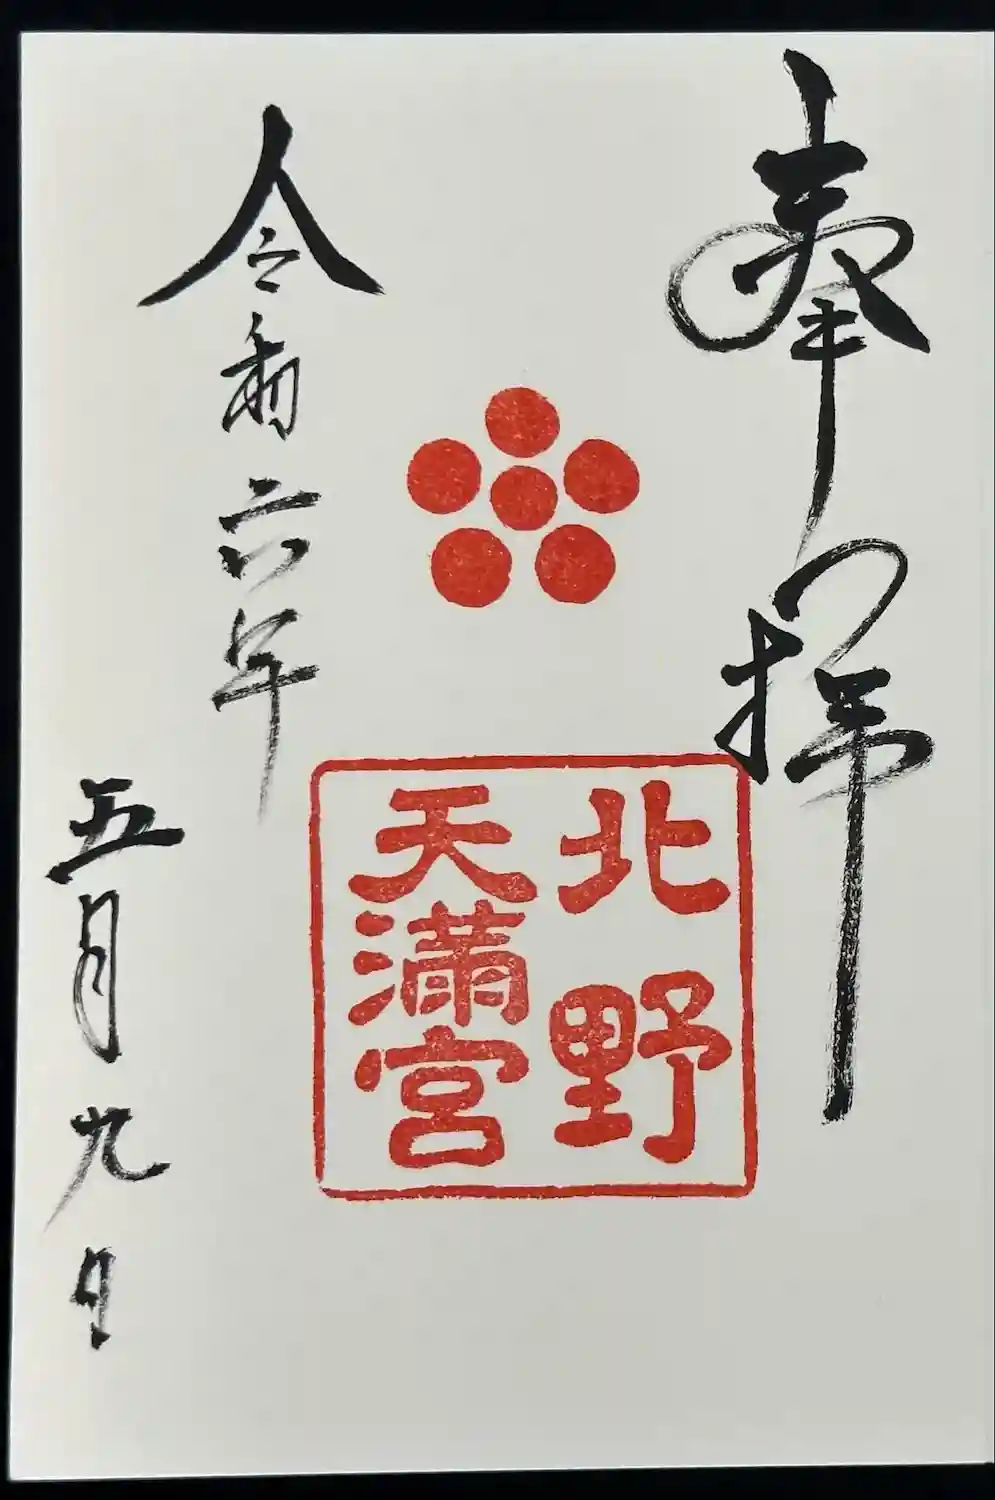 奉拝
北野
天満宮
令和六年
五月九日